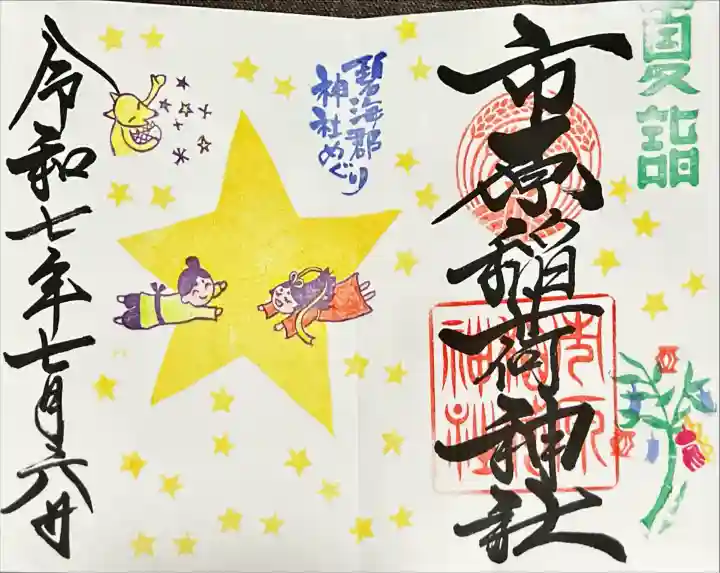 夏詣
市原稲荷神社
碧海郡
神社めぐり
令和七年七月六日